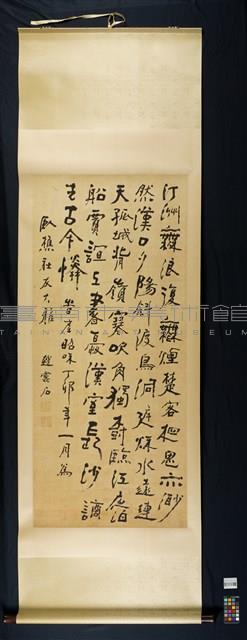 汀洲無浪復無煙楚客相思亦渺
然漢口夕陽斜渡鳥洞庭秋水遠連
天孤城背嶺寒吹角獨樹臨江夜泊
船賈誼上書憂漢室長沙謫
去古今憐 丁卯年一月為
臥樵社友大雅
趙雲石
臺南市美術館
TAINAN ART MUSEUM